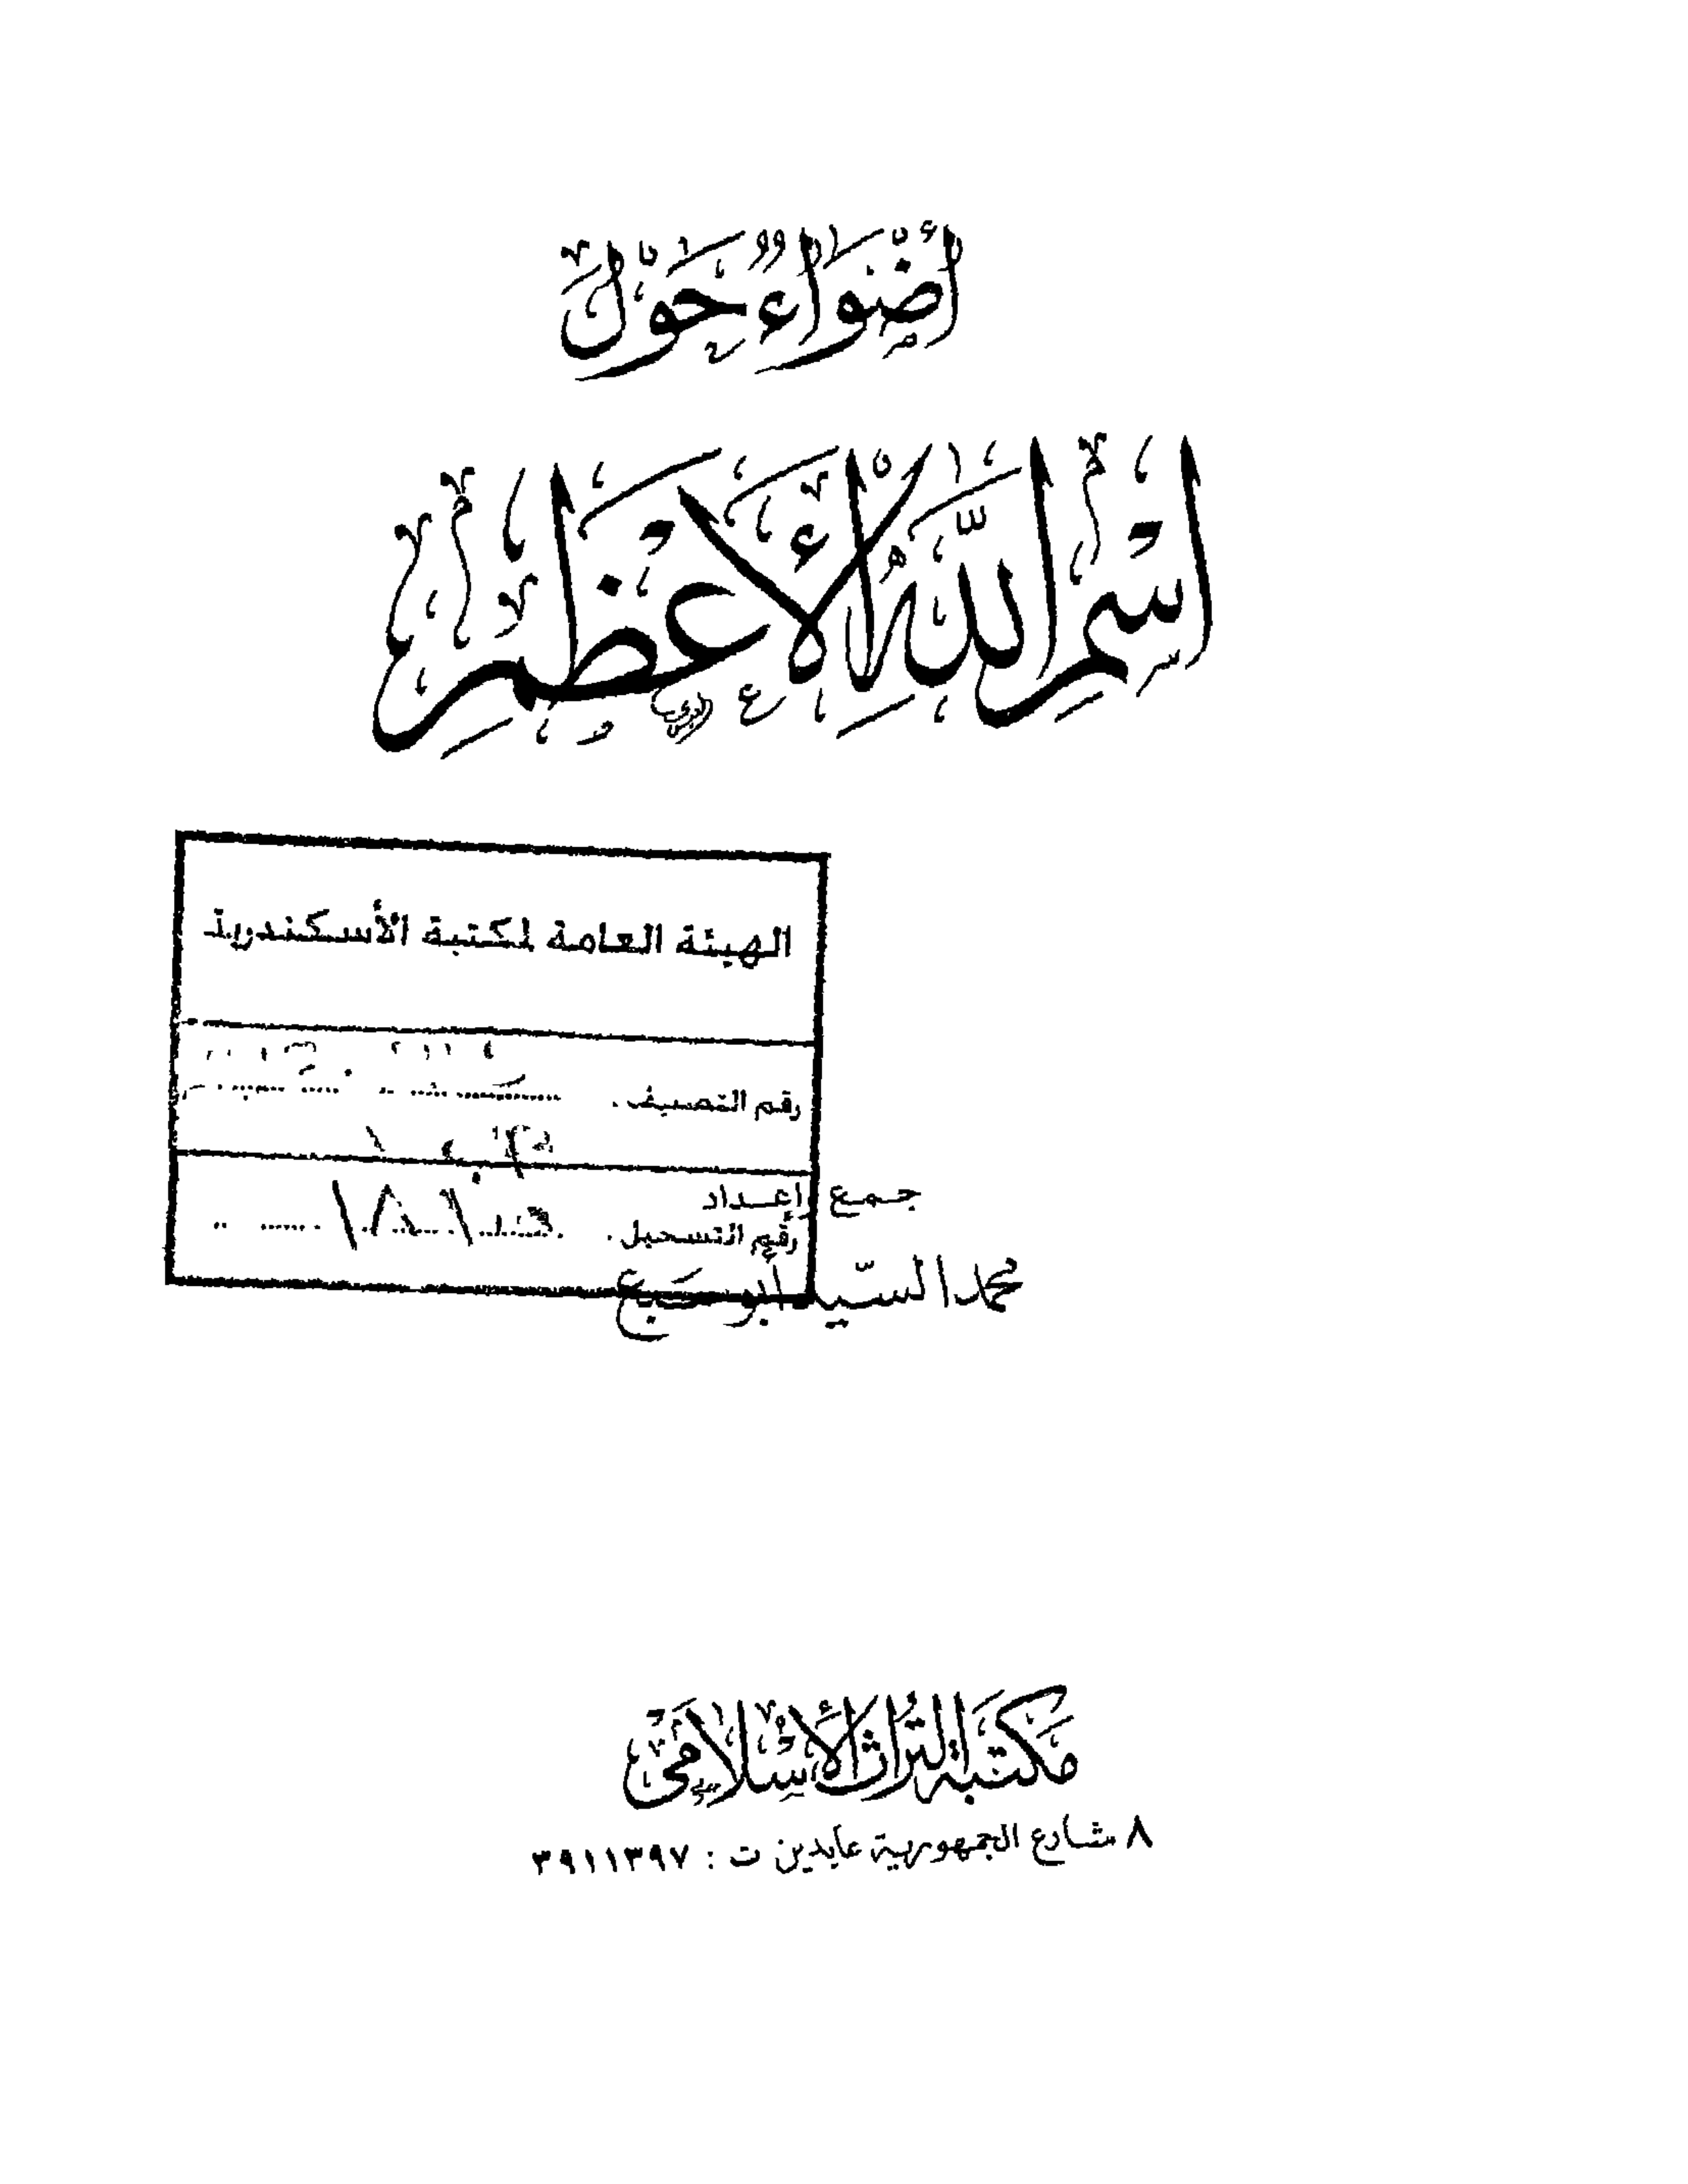 أضواء حول
اسم الله الأعظم
الهيئة العامة لمكتبة الأسكندرية
رقم التصنيف
جمع وإعداد
رقم التسجيل
محمد السيد أبو سبع
مكتبة التراث الإسلامى
٨ شارع الجمهورية عابدين ت : ٣٩١١٣٩٧